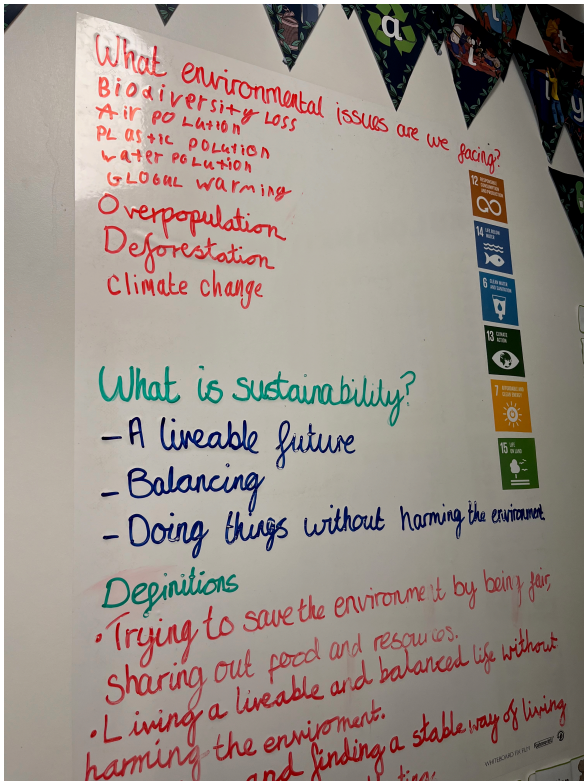 What environmental issues are we facing?
Biodiversity Loss
Air polution
PLastic polution
water polution
GLOBAL warming
Overpopulation
Deforestation
climate change
12 RESPONSIBLE CONSUMPTION AND PRODUCTION
14 LIFE BELOW WATER
6 CLEAN WATER AND SANITATION
13 CLIMATE ACTION
7 AFFORDABLE AND CLEAN ENERGY
15 LIFE ON LAND
What is sustainability?
- A liveable future
- Balancing
- Doing things without harming the environment
Definitions
• Trying to save the environment by being fair,
sharing out food and resources.
• Living a liveable and balanced life without
harming the enviroment.
and finding a stable way of living
a
i
t
l
y